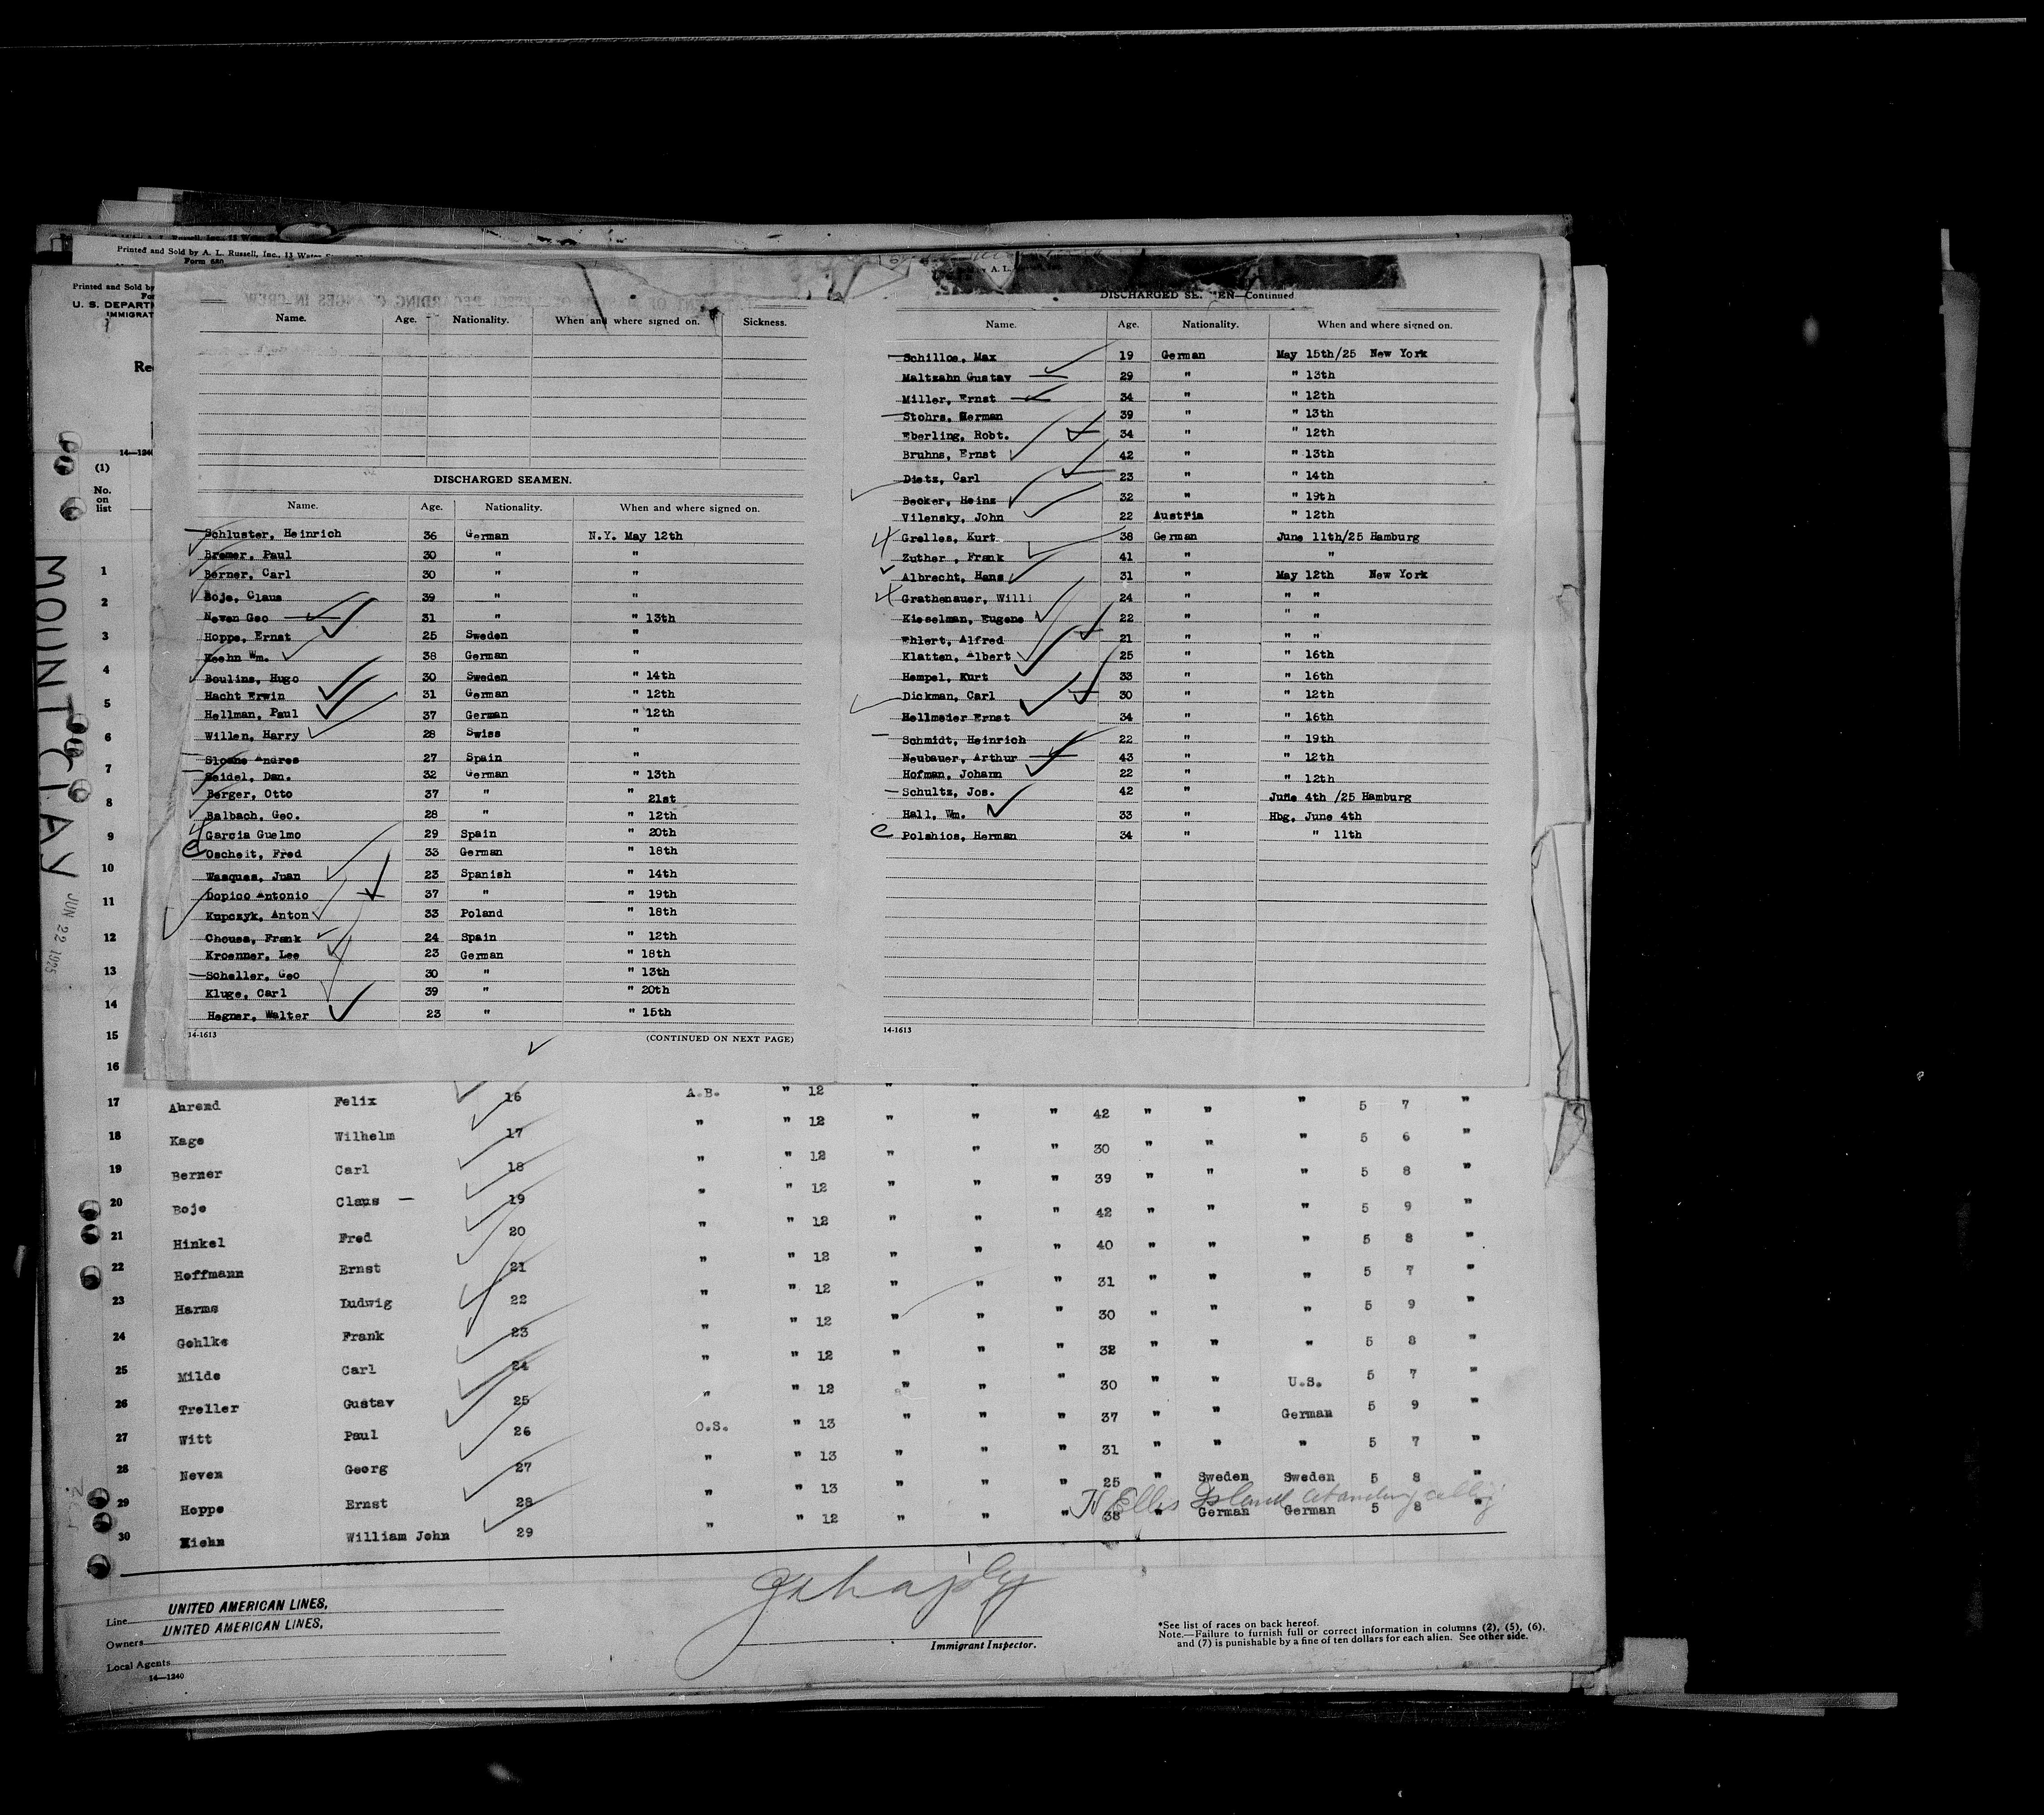 Printed and Sold by A. L. Russell, Inc., 13 Water
Form 680
Printed and Sold by
U. S. DEPARTM
IMMIGRAT
Re
14—1240
(1)
No.
on
list
MOUNT CLAY
JUN 22 1925
Name. Age. Nationality. When and where signed on. Sickness.
DISCHARGED SEAMEN.
Name. Age. Nationality. When and where signed on.
Schluster, Heinrich 36 German N.Y. May 12th
Bremer, Paul 30 " "
Berner, Carl 30 " "
Boje, Claus 39 " "
Neven Geo 31 " " 13th
Hoppe, Ernst 25 Sweden "
Keehn Wm. 38 German "
Boulins, Hugo 30 Sweden " 14th
Hacht Erwin 31 German " 12th
Hellman, Paul 37 German " 12th
Willen, Harry 28 Swiss "
Sloane Andres 27 Spain "
Seidel, Dan. 32 German " 13th
Berger, Otto 37 " " 21st
Balbach, Geo. 28 " " 12th
Garcia Guelmo 29 Spain " 20th
Oscheit, Fred 33 German " 18th
Wasques, Juan 23 Spanish " 14th
Dopico Antonio 37 " " 19th
Kupczyk, Anton 33 Poland " 18th
Chousa, Frank 24 Spain " 12th
Kroenner, Lee 23 German " 18th
Scheller, Geo 30 " " 13th
Kluge, Carl 39 " " 20th
Hegner, Walter 23 " " 15th
14-1613 (CONTINUED ON NEXT PAGE)
DISCHARGED SE MEN—Continued
Name. Age. Nationality. When and where signed on.
Schilloe, Max 19 German May 15th/25 New York
Maltzahn Gustav 29 " " 13th
Miller, Ernst 34 " " 12th
Stohrs, Herman 39 " " 13th
Eberling, Robt. 34 " " 12th
Bruhns, Ernst 42 " " 13th
Dietz, Carl 23 " " 14th
Becker, Heinz 32 " " 19th
Vilensky, John 22 Austria " 12th
Grelles, Kurt 38 German June 11th/25 Hamburg
Zuther , Frank 41 " "
Albrecht, Hans 31 " May 12th New York
Grathenauer, Willi 24 " " "
Kieselman, Eugene 22 " " "
Ehlert, Alfred 21 " " "
Klatten, Albert 25 " " 16th
Hempel, Kurt 33 " " 16th
Dickman, Carl 30 " " 12th
Hellmeier Ernst 34 " " 16th
Schmidt, Heinrich 22 " " 19th
Neubauer, Arthur 43 " " 12th
Hofman, Johann 22 " " 12th
Schultz, Jos. 42 " June 4th /25 Hamburg
Hall, Wm. 33 " Hbg. June 4th
Polshios, Herman 34 " " 11th
14-1613
1
2
3
4
5
6
7
8
9
10
11
12
13
14
15
16
17 Ahrend Felix 16 A.B. " 12 " " " 42 " " " 5 7 "
18 Kage Wilhelm 17 " " 12 " " " 30 " " " 5 6 "
19 Berner Carl 18 " " 12 " " " 39 " " " 5 8 "
20 Boje Claus — 19 " " 12 " " " 42 " " " 5 9 "
21 Hinkel Fred 20 " " 12 " " " 40 " " " 5 8 "
22 Hoffmann Ernst 21 " " 12 " " " 31 " " " 5 7 "
23 Harms Ludwig 22 " " 12 " " " 30 " " " 5 9 "
24 Gehlke Frank 23 " " 12 " " " 32 " " " 5 8 "
25 Milde Carl 24 " " 12 " " " 30 " " U.S. 5 7 "
26 Treller Gustav 25 " " 12 " " " 37 " " German 5 9 "
27 Witt Paul 26 O.S. " 13 " " " 31 " " " 5 7 "
28 Neven Georg 27 " " 13 " " " 25 " Sweden Sweden 5 8 "
29 Hoppe Ernst 28 " " 13 " " " 38 " German German 5 8 "
30 Kiehn William John 29 " " 12 " "
Ellis Island
Line UNITED AMERICAN LINES,
Owners UNITED AMERICAN LINES,
Local Agents
14—1240
Immigrant Inspector.
*See list of races on back hereof.
Note.—Failure to furnish full or correct information in columns (2), (5), (6),
and (7) is punishable by a fine of ten dollars for each alien. See other side.